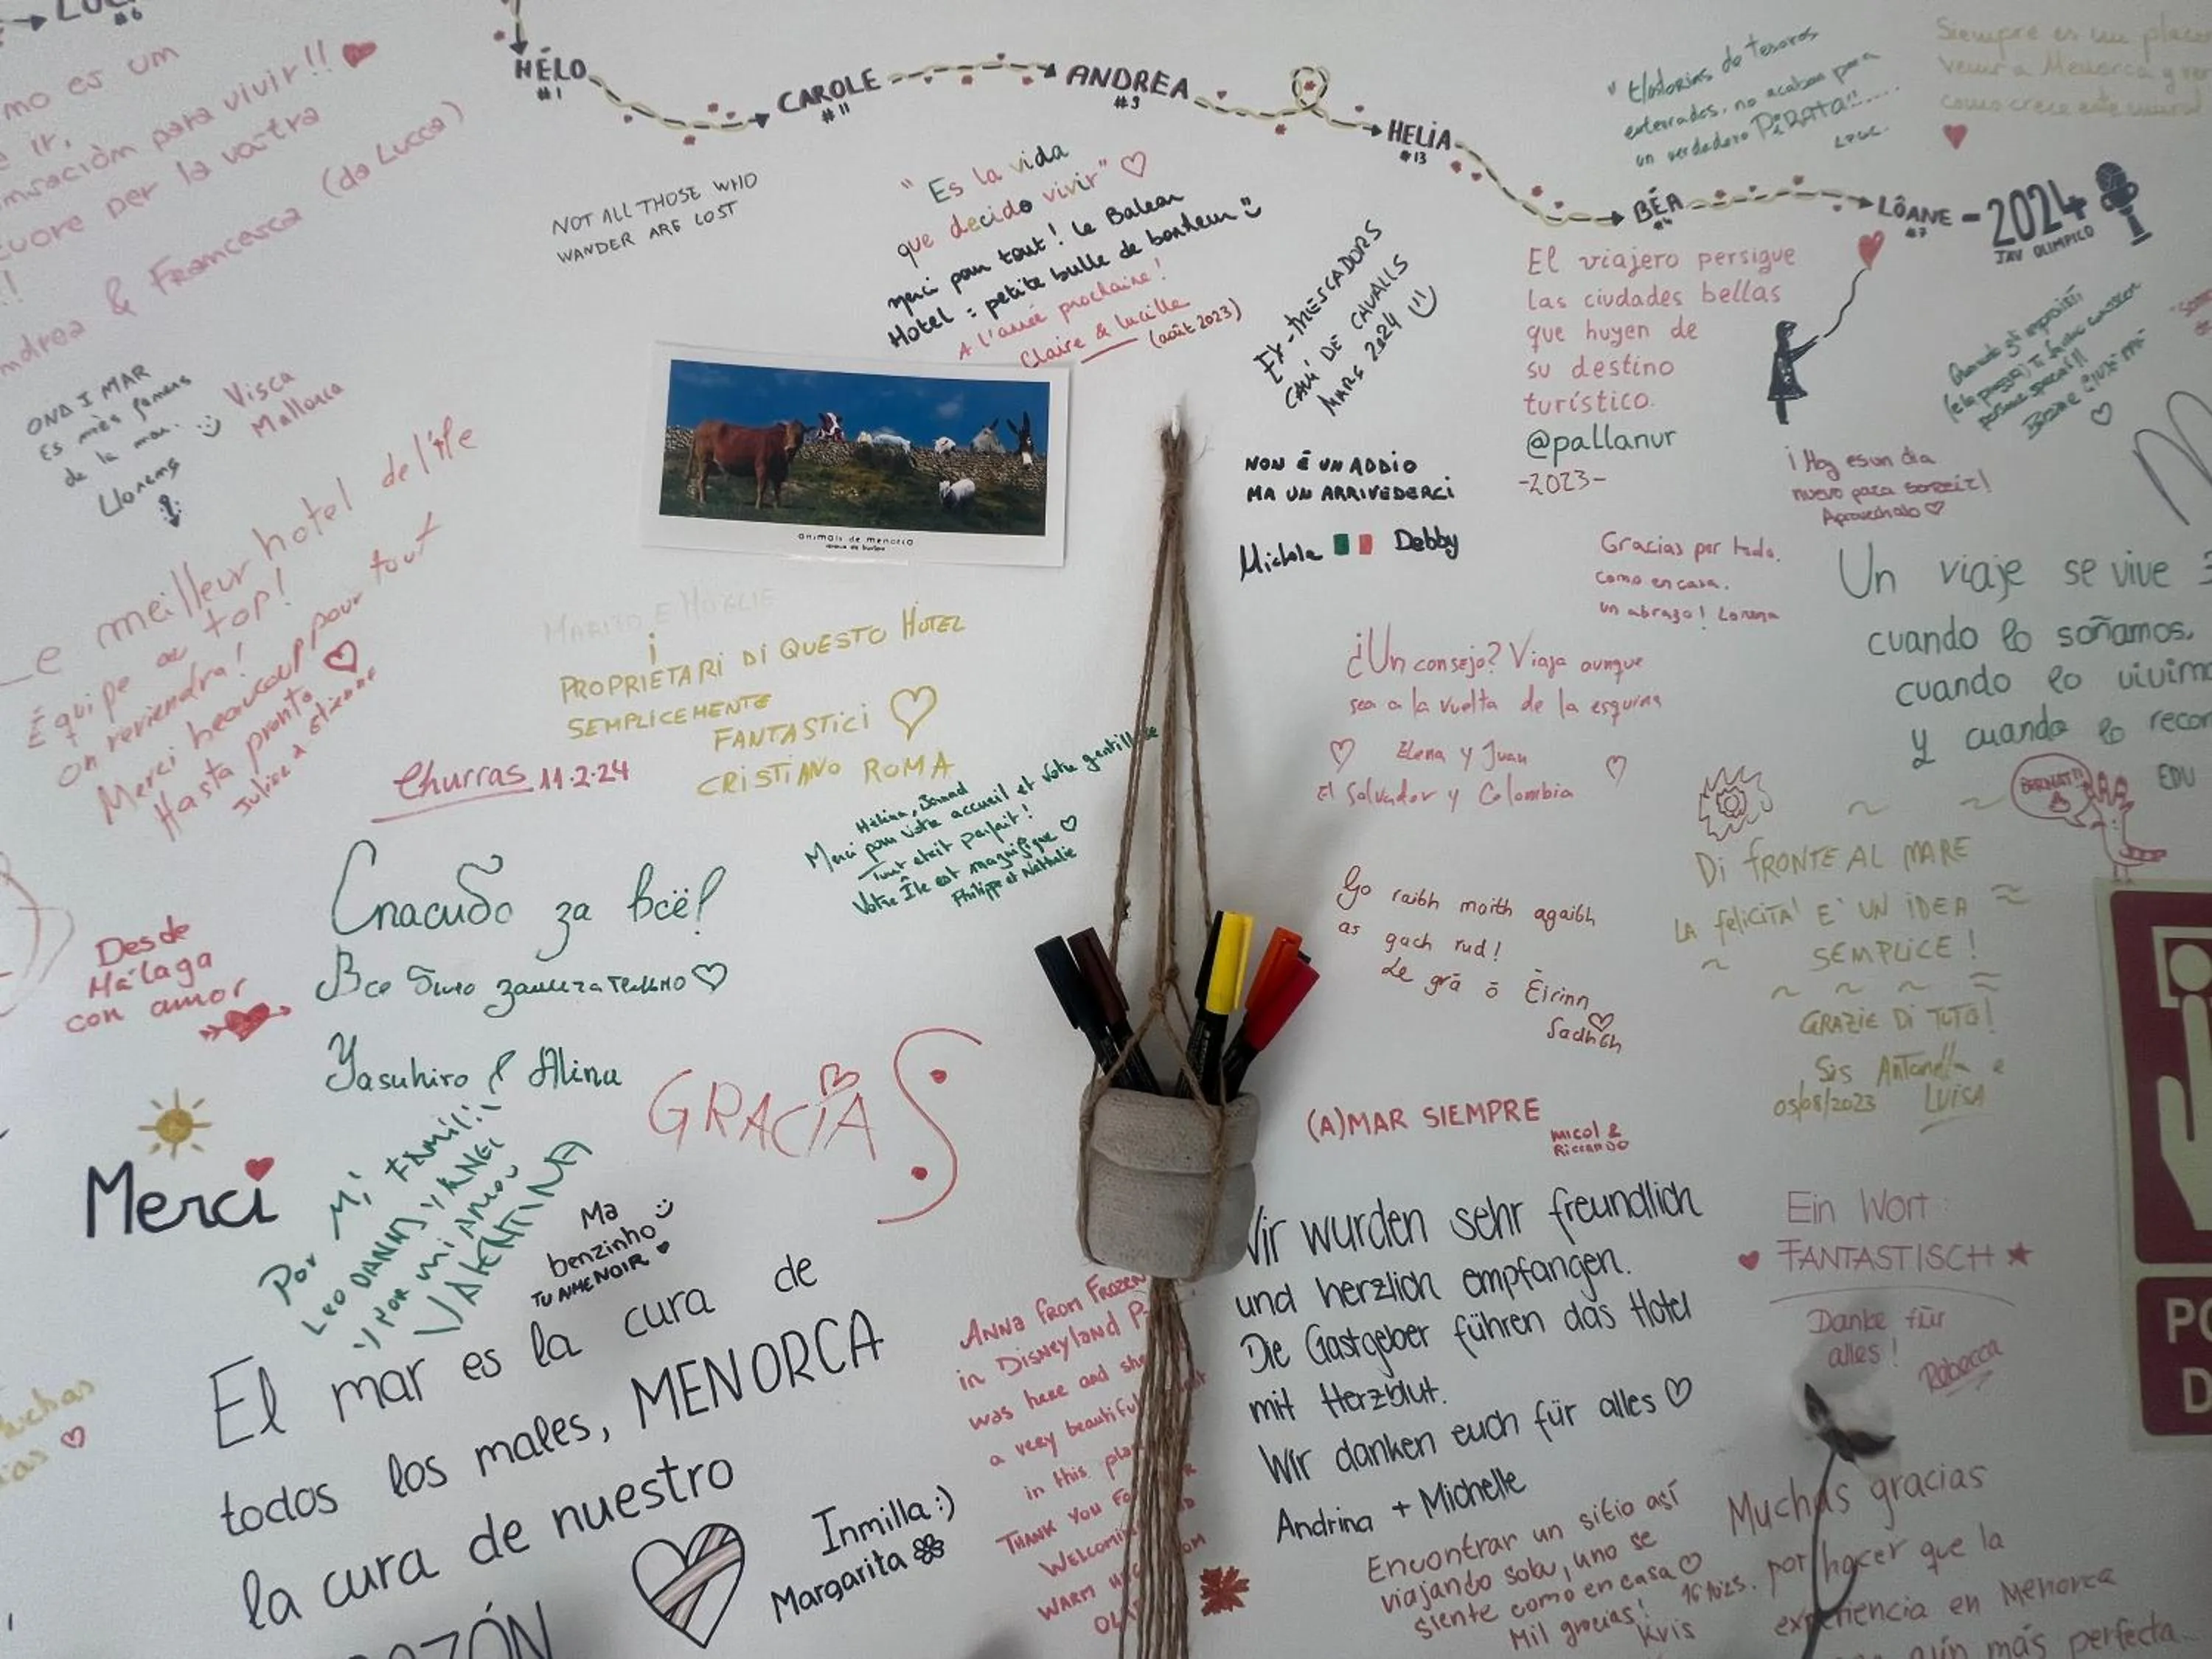 #6
HÉLO
#1
CAROLE
#11
ANDREA
#9
HELIA
#13
BÉA
LÔANE - 2024
JAV OLIMPICO
mo es um
ir,
para vivir!!
cuore per la vostra
& Francesca (da Lucca)
NOT ALL THOSE WHO
WANDER ARE LOST
"Es la vida
que decido vivir"
merci pour tout! Le Balear
Hotel : petite bulle de bonheur
A l'année prochaine!
Claire & Lucille
(août 2023)
EX-TRESCADORS
CAMÍ DE CAVALLS
MARÇ 2024
"Historias de tesoros
enterrados, no acaban para
un verdadero PiRATA!!.....
Siempre es un placer
venir a Menorca y ver
como crece este mural
El viajero persigue
las ciudades bellas
que huyen de
su destino
turístico.
@pallanur
-2023-
ONA I MAR
Es més famós
de la mar.
Llorenç
Visca
Mallorca
animals de menorca
NON È UN ADDIO
MA UN ARRIVEDERCI
Michele Debby
¡Hoy es un día
nuevo para sonreir!
Aprovechalo
Gracias por todo.
como en casa.
un abrazo! Lorena
Un viaje se vive 3
cuando lo soñamos,
cuando lo vivim
y cuando lo recor
EDU
Le meilleur hotel de l'île
Équipe au top!
On reviendra!
Merci beaucoup pour tout
Hasta pronto
Julie & Etienne
MARITO E MOGLIE
i
PROPRIETARI DI QUESTO HOTEL
SEMPLICEMENTE
FANTASTICI
CRISTIANO ROMA
¿Un consejo? Viaja aunque
sea a la vuelta de la esquina
Elena y Juan
El Salvador y Colombia
Churras 11.2.24
Merci pour votre accueil et votre gentillesse
Tout était parfait!
Votre Île est magnifique
Philippe et Nathalie
Спасибо за всё!
Все было замечательно
Yasuhiro & Alina
Desde
Málaga
con amor
Go raibh maith agaibh
as gach rud!
Le grá ó Éirinn
Sadhbh
DI FRONTE AL MARE
LA FELICITA' E' UN IDEA
SEMPLICE!
GRAZIE DI TUTO!
Sis Antonella e
05/08/2023 LUISA
GRACIAS
Merci
Por Mi FAMILIA
LEO DANNY Y ANGI
Y POR MI AMOR
VALENTINA
Ma
benzinho
TU AIMENOIR
(A)MAR SIEMPRE
MICOL &
RICCARDO
El mar es la cura de
todos los males, MENORCA
la cura de nuestro
Inmilla :)
Margarita
ANNA FROM FROZEN
in DISNEYLAND P
was here and she
a very beautiful
in this pla
THANK YOU FO
WELCOMIN
WARM
Wir wurden sehr freundlich
und herzlich empfangen.
Die Gastgeber führen das Hotel
mit Herzblut.
Wir danken euch für alles
Andrina + Michelle
Ein Wort:
FANTASTISCH
Danke für
alles!
Rebecca
Encontrar un sitio así
viajando sola, uno se
siente como en casa
Mil gracias!
Kris
Muchas gracias
por hacer que la
experiencia en Menorca
aún más perfecta...
PO
D